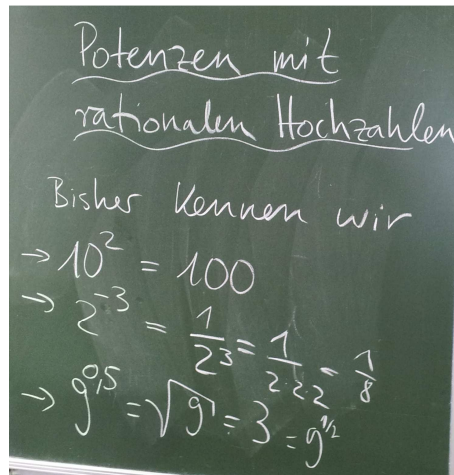 Potenzen mit
rationalen Hochzahlen
Bisher kennen wir
→ 10² = 100
→ 2⁻³ = 1/2³ = 1/2·2·2 = 1/8
→ 9^0,5 = √9 = 3 = 9^1/2